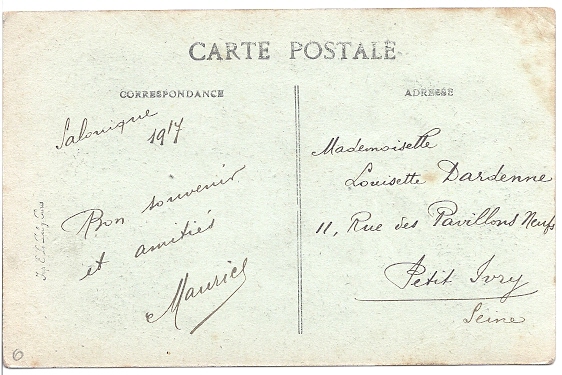 CARTE POSTALE
CORRESPONDANCE
Salonique
1917
Bon souvenir
et amitiés
Maurice
ADRESSE
Mademoiselle
Louisette Dardenne
11, Rue des Pavillons Neufs
Petit Ivry
Seine
6